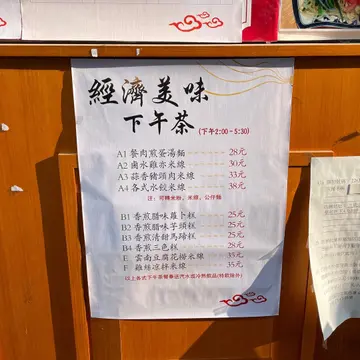 經濟美味
下午茶
(下午2:00 - 5:30)
A1 餐肉煎蛋湯麵 28元
A2 鹵水雞亦米線 30元
A3 蒜香豬頭肉米線 33元
A4 各式水餃米線 38元
注: 可轉米粉、米線、公仔麵
B1 香煎腊味蘿卜糕 25元
B2 香煎腊味芋頭糕 25元
B3 香煎清甜馬蹄糕 25元
B4 香煎三色糕 28元
E 雲南豆腐花撈米線 35元
F 雞絲涼拌米線 35元
以上各式下午茶餐奉送汽水或冷熱飲品(特飲除外)